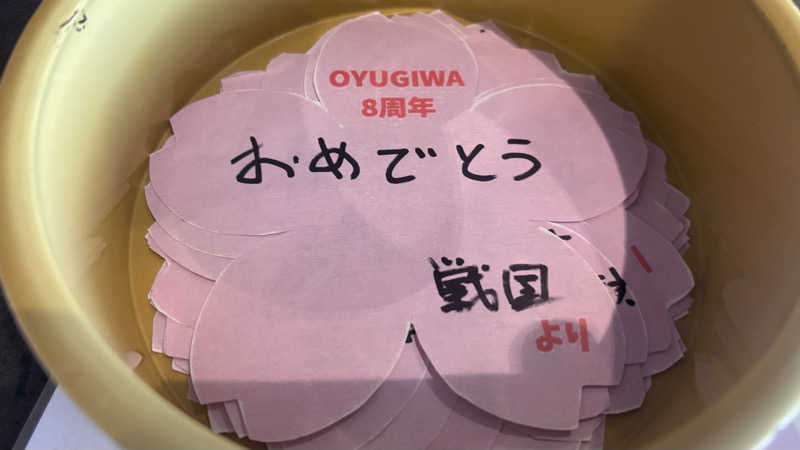 OYUGIWA
8周年
おめでとう
戦国
より